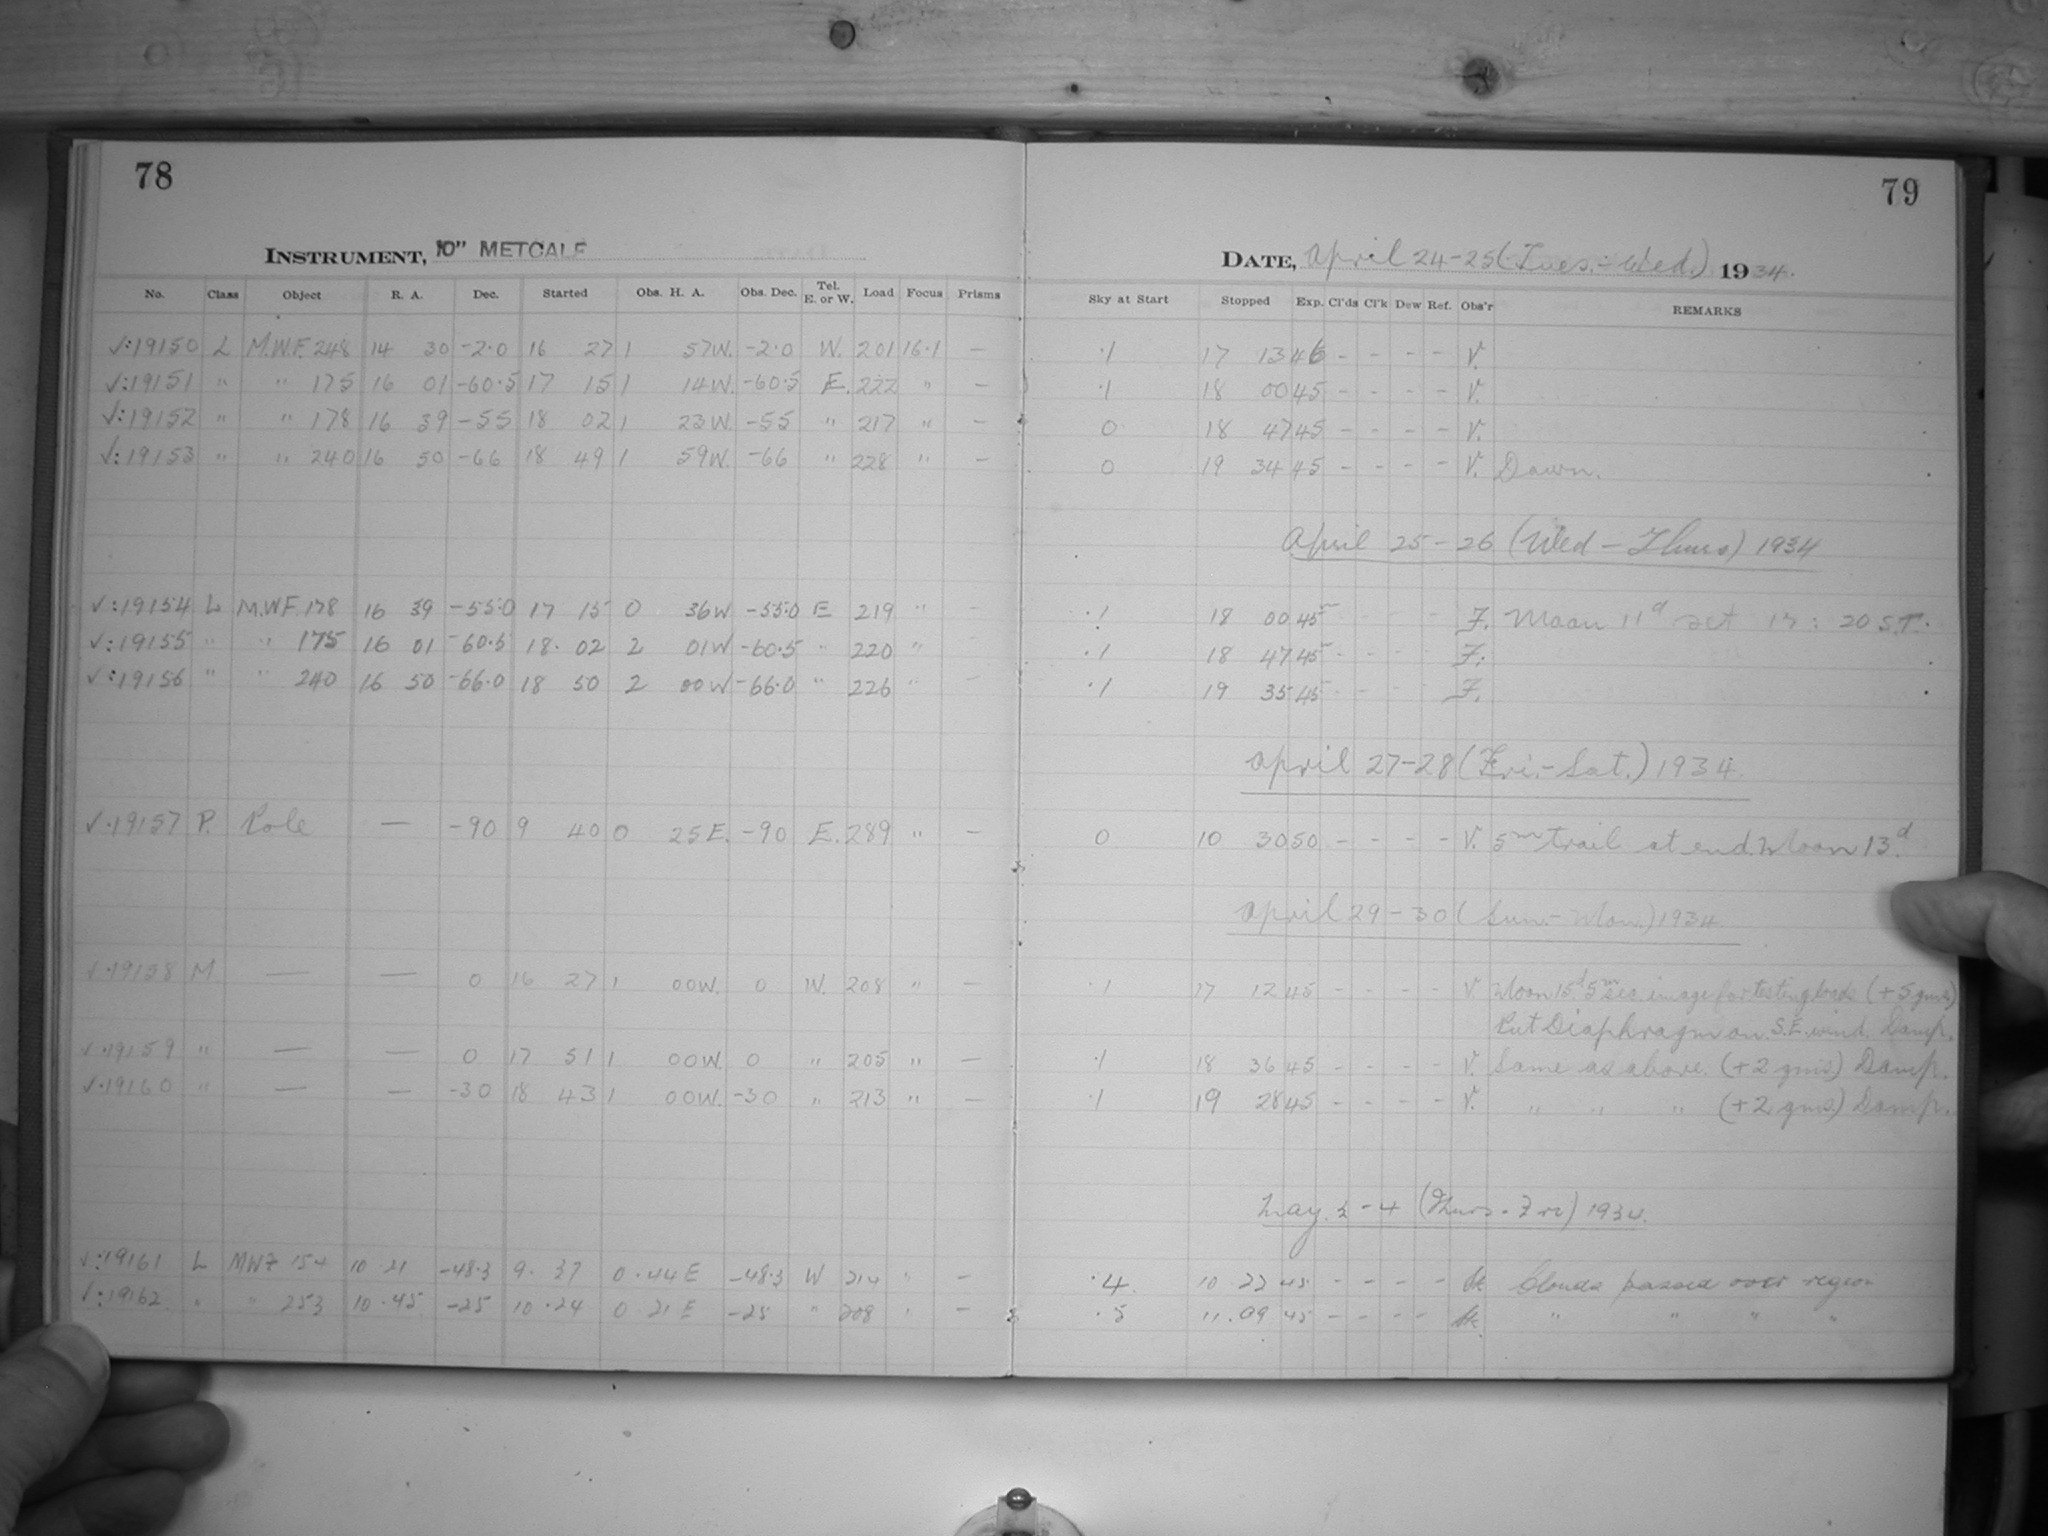 78
INSTRUMENT, 10" METCALF
No. Class Object R. A. Dec. Started Obs. H. A. Obs. Dec. Tel. E. or W. Load Focus Prisms
√:19150 L M.W.F. 248 14 30 -2·0 16 27 1 57W. -2·0 W. 201 16·1 —
√:19151 " " 175 16 01 -60·5 17 15 1 14W. -60·5 E. 222 " —
√:19152 " " 178 16 39 -55 18 02 1 23W. -55 " 217 " —
√:19153 " " 240 16 50 -66 18 49 1 59W. -66 " 228 " —
√:19154 L M.W.F. 178 16 39 -55·0 17 15 0 36W -55·0 E 219 " —
√:19155 " " 175 16 01 -60·5 18· 02 2 01W -60·5 " 220 "
√:19156 " " 240 16 50 -66·0 18 50 2 00W -66·0 " 226 " —
√·19157 P. Pole — -90 9 40 0 25E. -90 E. 289 " —
√·19158 M. — — 0 16 27 1 00W. 0 W. 208 " —
√·19159 " — — 0 17 51 1 00W. 0 " 205 " —
√·19160 " — — -30 18 43 1 00W. -30 " 213 " —
√:19161 L MWF 154 10·21 -48·3 9· 37 0·44E -48·3 W 214 " —
√:19162 " " 253 10·45 -25 10·24 0·21E -25 " 208 " —
79
DATE, April 24-25 (Tues.-Wed.) 1934.
Sky at Start Stopped Exp. Cl'ds Cl'k Dew Ref. Obs'r REMARKS
·1 17 13 46 - - - - V.
·1 18 00 45 - - - - V.
0 18 47 45 - - - - V.
0 19 34 45 - - - - V. Dawn.
April 25-26 (Wed-Thurs) 1934
·1 18 00 45 - - - - F. Moon 11d set 17:20 S.T.
·1 18 47 45 - - - - F.
·1 19 35 45 - - - - F.
April 27-28 (Fri.-Sat.) 1934.
0 10 30 50 - - - - V. 5m trail at end. Moon 13d.
April 29-30 (Sun.-Mon.) 1934.
·1 17 12 45 - - - - V. Moon 15d 5m sec. image for testing loads (+5 gms)
Put Diaphragm on. S.E. wind. Damp.
·1 18 36 45 - - - - V. Same as above. (+2 gms) Damp.
·1 19 28 45 - - - - V. " " " (+2 gms) Damp.
May 3-4 (Thurs-Fri) 1934.
·4 10 22 45 - - - - Clouds passed over region
·5 11·09 45 - - - - " " " "